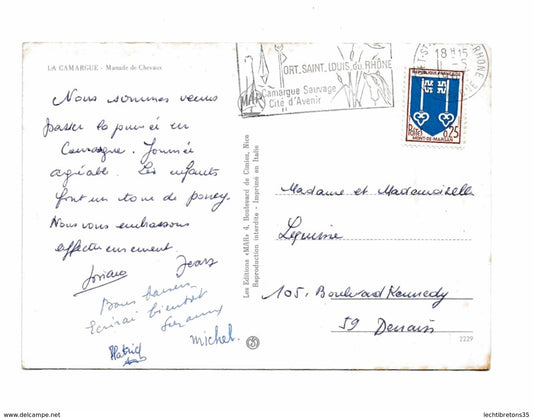 LA CAMARGUE - Manade de Chevaux
Nous sommes venus
passer la journée en
Camargue. Journée
agréable. Les enfants
font un tour de poney.
Nous vous embrassons
affectueusement.
Josiane Jean
Bons baisers
Ecrirai bientôt
Suzanne
Patrick
michel.
Les Editions «MAR» 4, Boulevard de Cimiez, Nice
Reproduction interdite - Imprimé en Italie
PORT.SAINT.LOUIS.du.RHÔNE
Camargue Sauvage
Cité d'Avenir
18 H 15
RHÔNE
REPUBLIQUE FRANÇAISE
POSTES 0,25
MONT-DE-MARSAN
Madame et Mademoiselle
Lequime
105, Boulevard Kennedy
59 Denain
2229
lechtibretons35